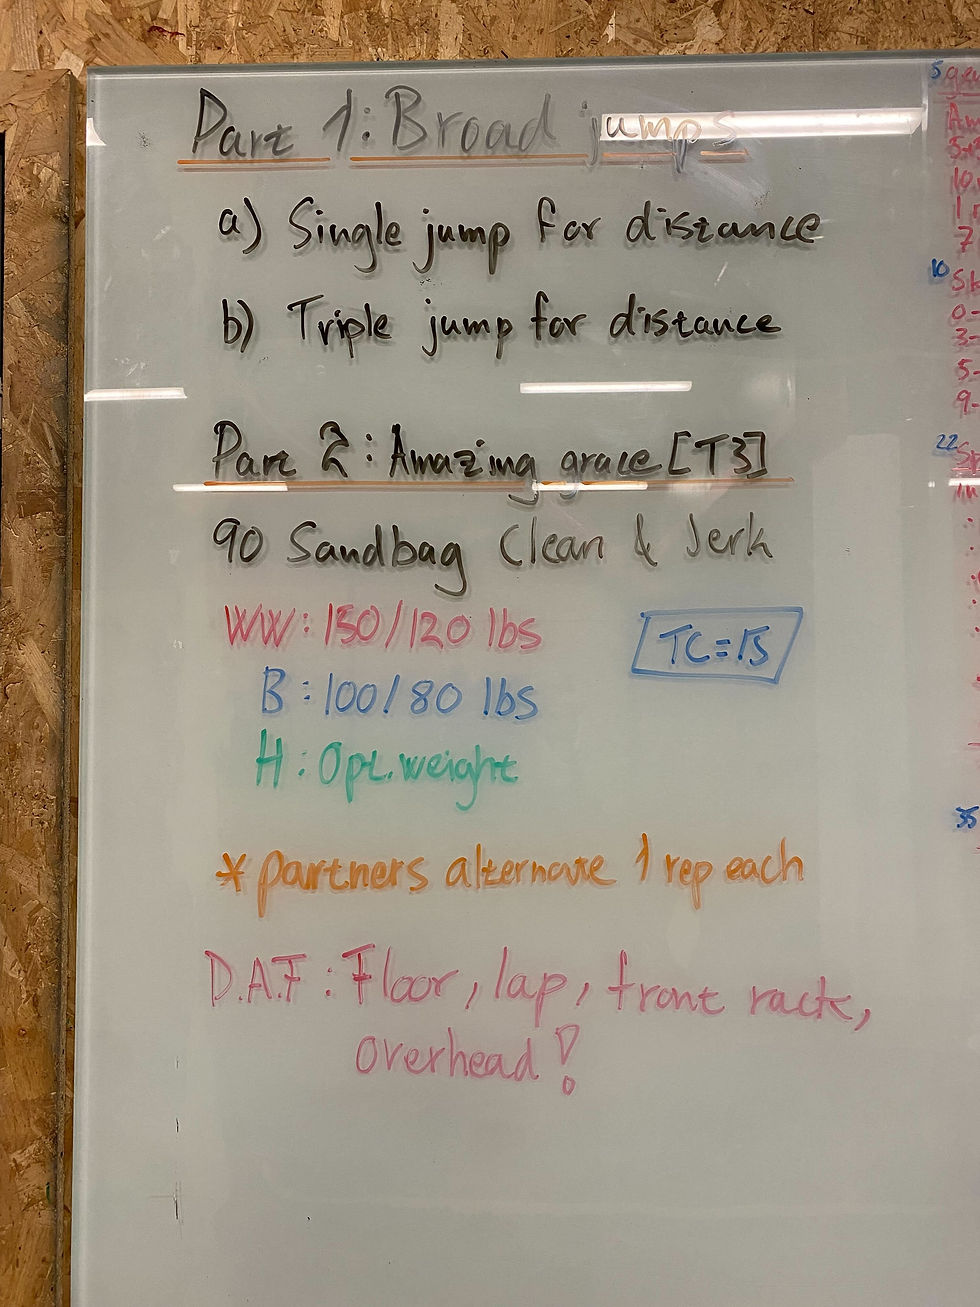 Part 1: Broad jumps
a) Single jump for distance
b) Triple jump for distance
Part 2: Amazing grace [T3]
90 Sandbag Clean & Jerk
WW: 150/120 lbs
TC=15
B: 100/80 lbs
H: Opt. weight
*partners alternate 1 rep each
D.A.F: Floor, lap, front rack,
overhead!
5
10
22
35